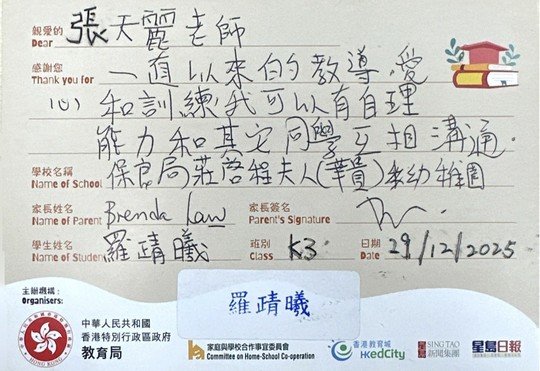 親愛的 Dear 張天麗老師
感謝您 Thank you for 一直以來的教導,愛
心和訓練,我可以有自理
能力和其它同學互相溝通.
學校名稱 Name of School 保良局莊啓程夫人(華貴)幼稚園
家長姓名 Name of Parent Brenda Law 家長簽名 Parent's Signature
學生姓名 Name of Student 羅靖曦 班別 Class K3 日期 Date 29/12/2025
主辦機構:
Organisers:
羅靖曦
中華人民共和國
香港特別行政區政府
教育局
HONG KONG
家庭與學校合作事宜委員會
Committee on Home-School Co-operation
香港教育城
HKedCity
星島 SING TAO
新聞集團
星島日報